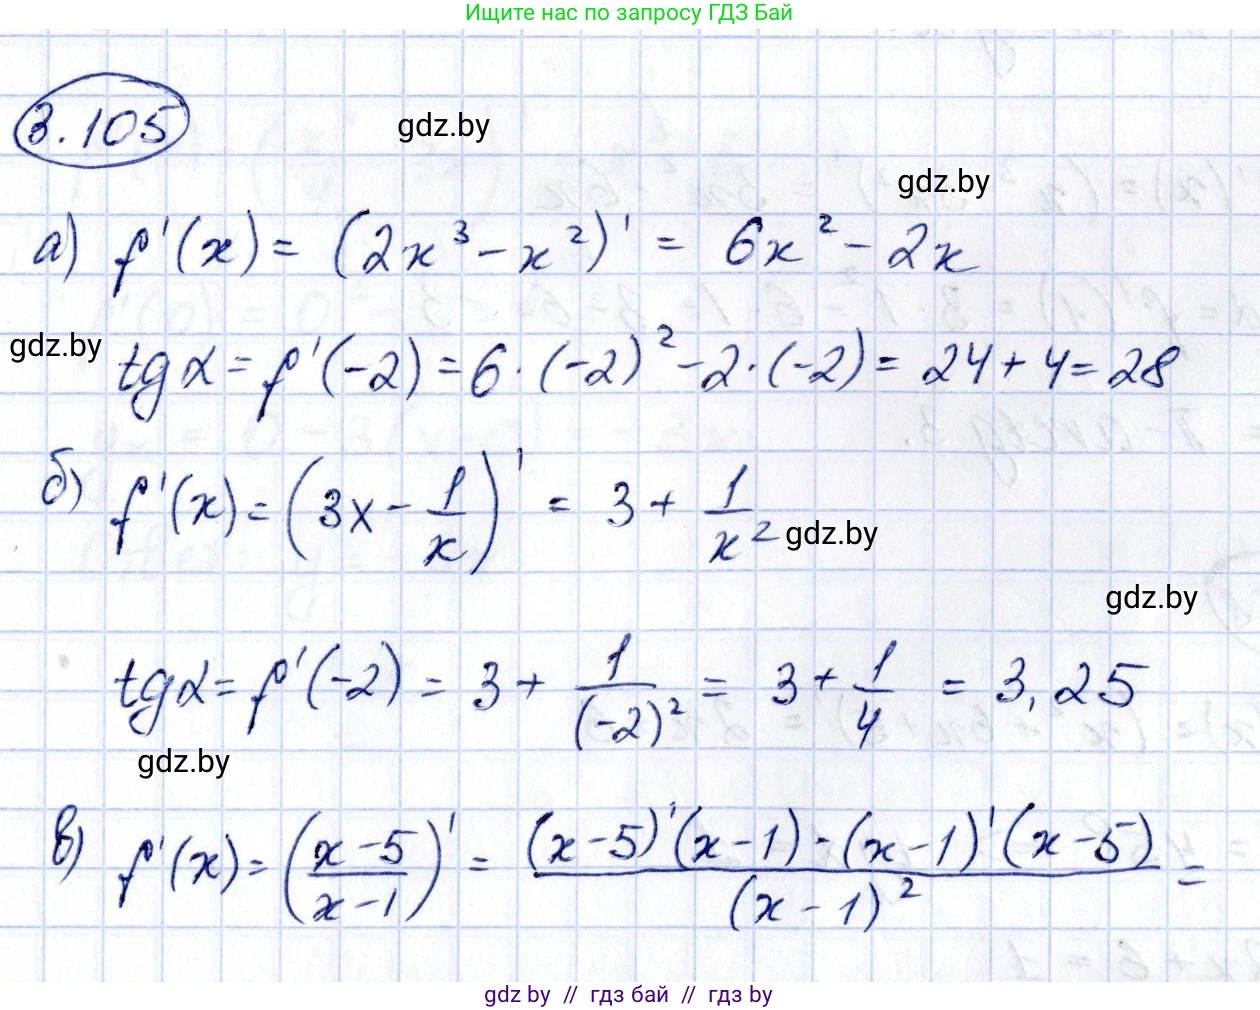 Ищите нас по запросу ГДЗ Бай
3.105
gdz.by
gdz.by
а) f'(x) = (2x³ - x²)' = 6x² - 2x
gdz.by
tg α = f'(-2) = 6·(-2)² - 2·(-2) = 24 + 4 = 28
б) f'(x) = (3x - 1/x)' = 3 + 1/x²
gdz.by
gdz.by
tg α = f'(-2) = 3 + 1/(-2)² = 3 + 1/4 = 3,25
gdz.by
в) f'(x) = ((x-5)/(x-1))' = ((x-5)'(x-1) - (x-1)'(x-5))/(x-1)² =
gdz by // гдз бай // гдз by